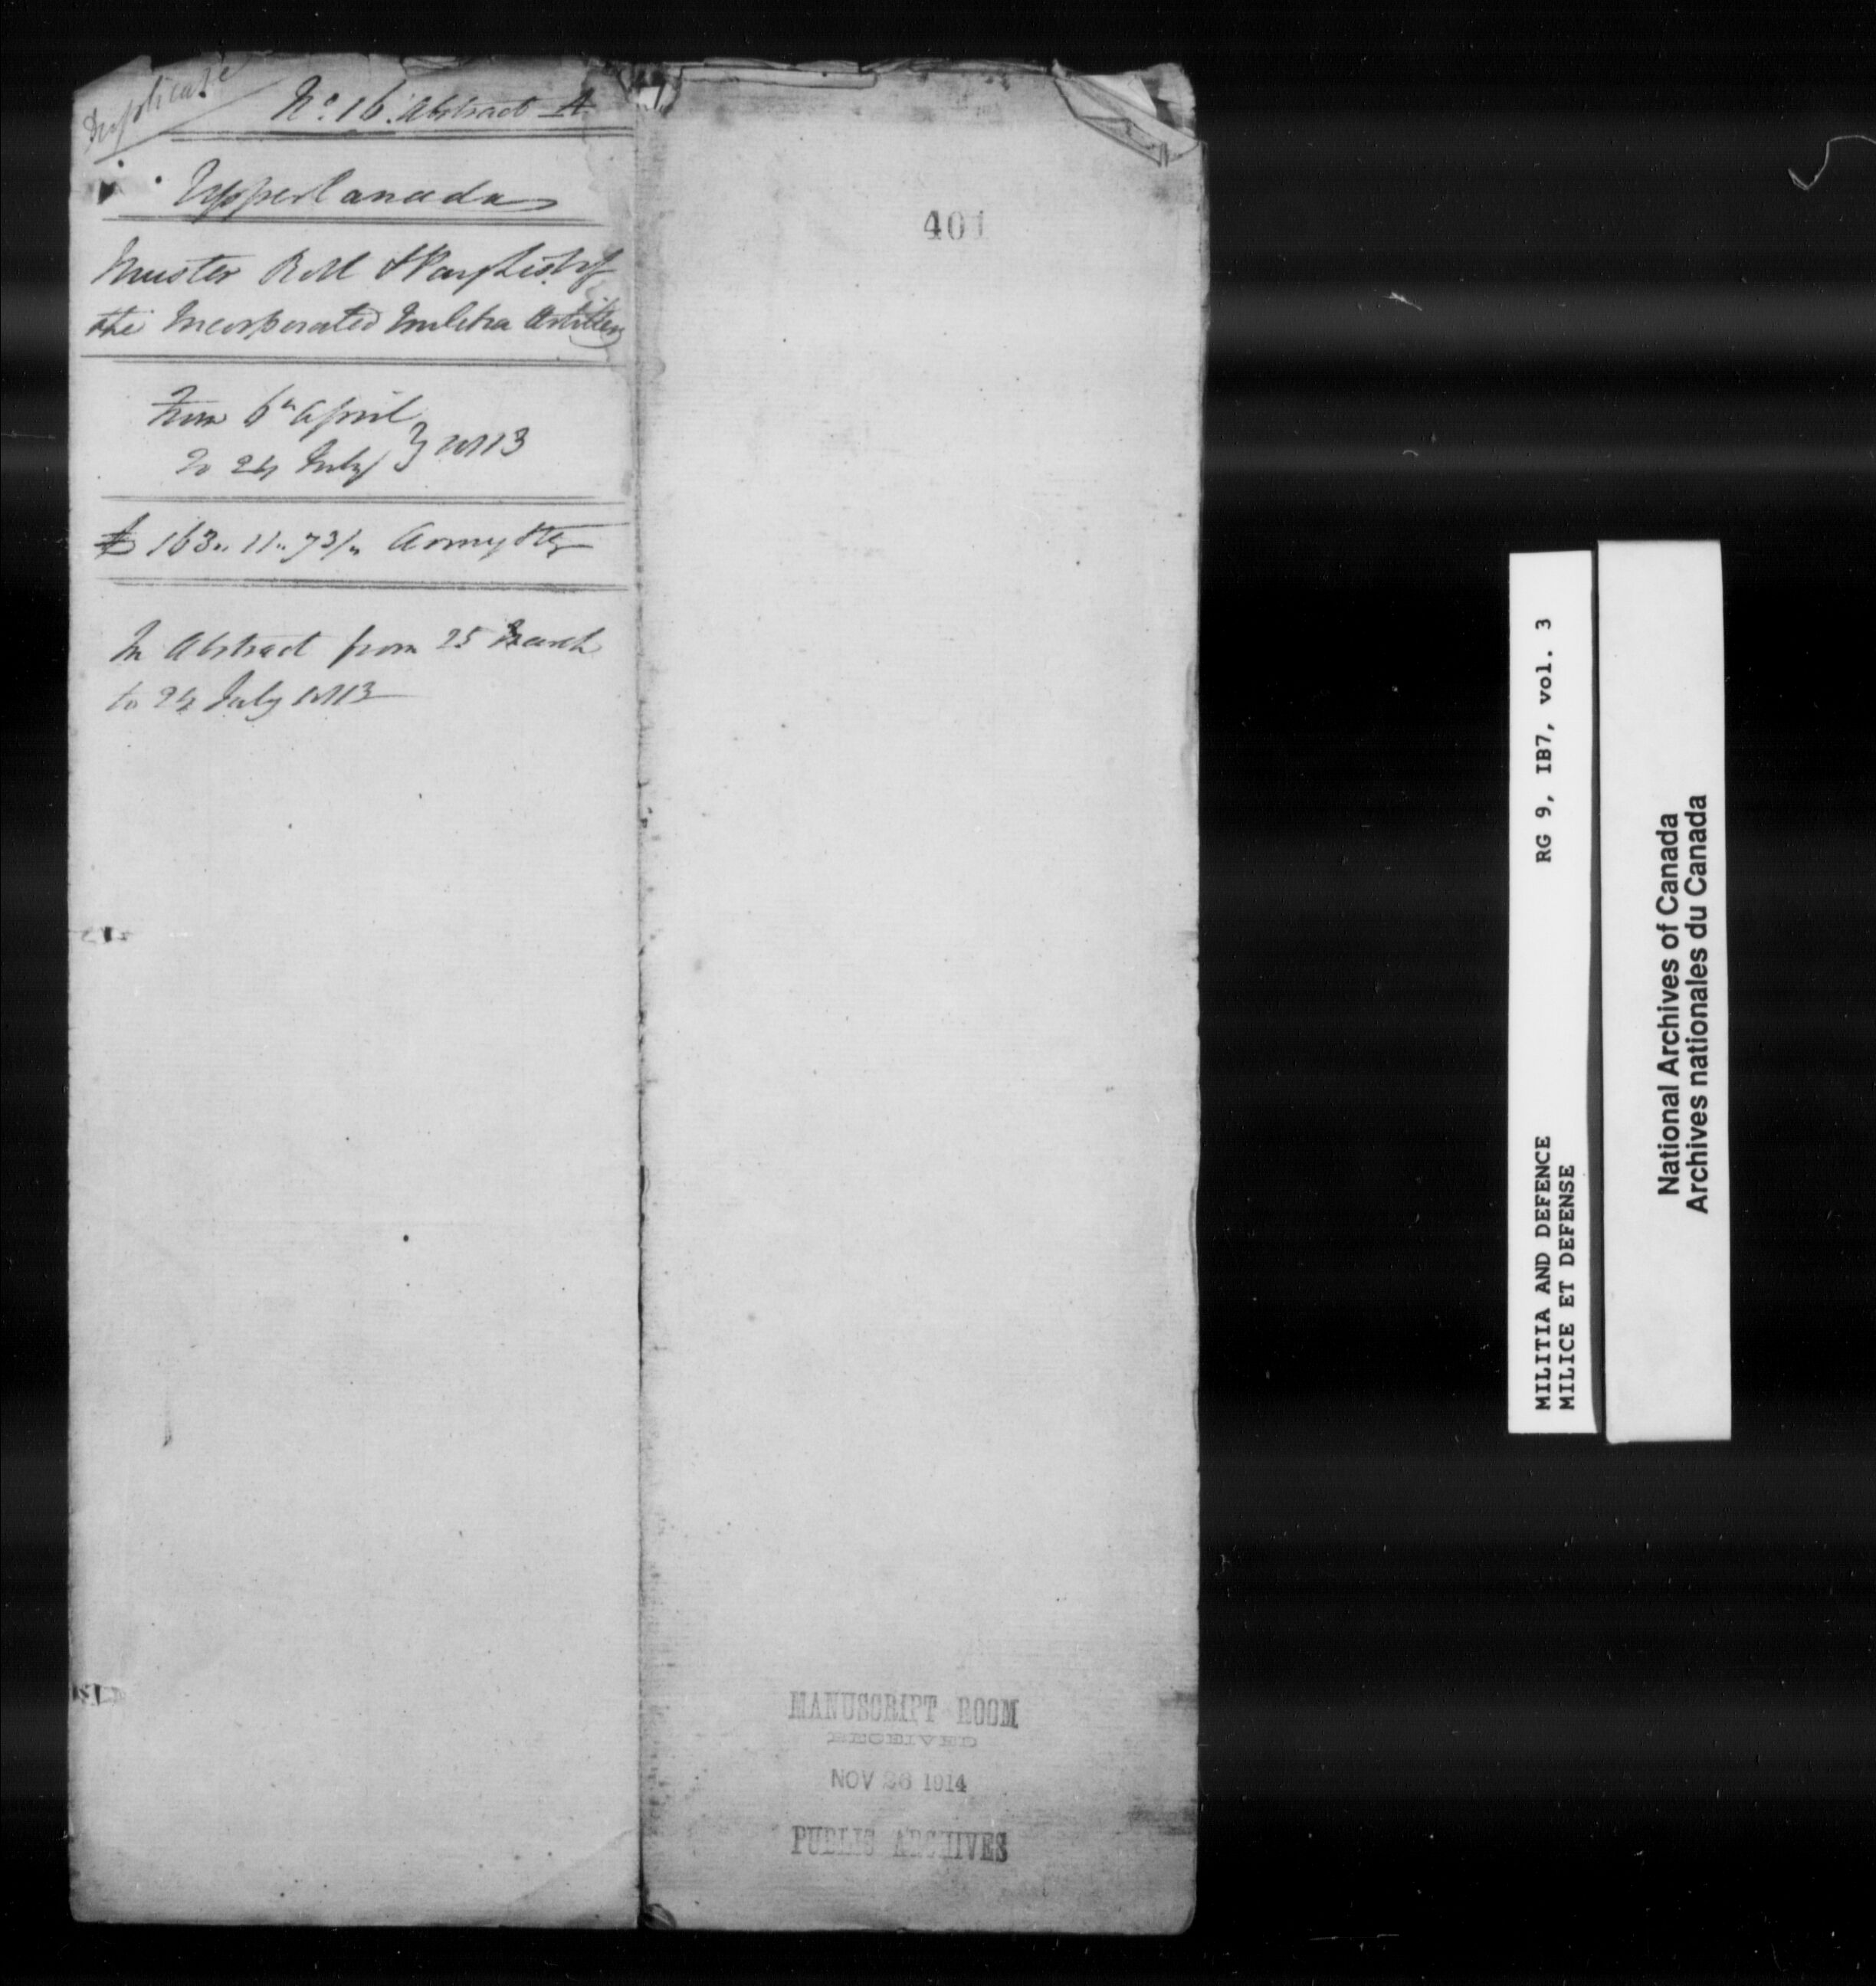 Duplicate
No. 16 Abstract A
Upper Canada
Muster Roll & Pay List of
the Incorporated Militia Artillery
From 6th April
To 24 July } 1813
£ 163.. 11.. 7 3/4 Army Stg
In Abstract from 25 March
to 24 July 1813
401
MANUSCRIPT ROOM
RECEIVED
NOV 26 1914
PUBLIC ARCHIVES
MILITIA AND DEFENCE RG 9, IB7, vol. 3
MILICE ET DEFENSE
National Archives of Canada
Archives nationales du Canada